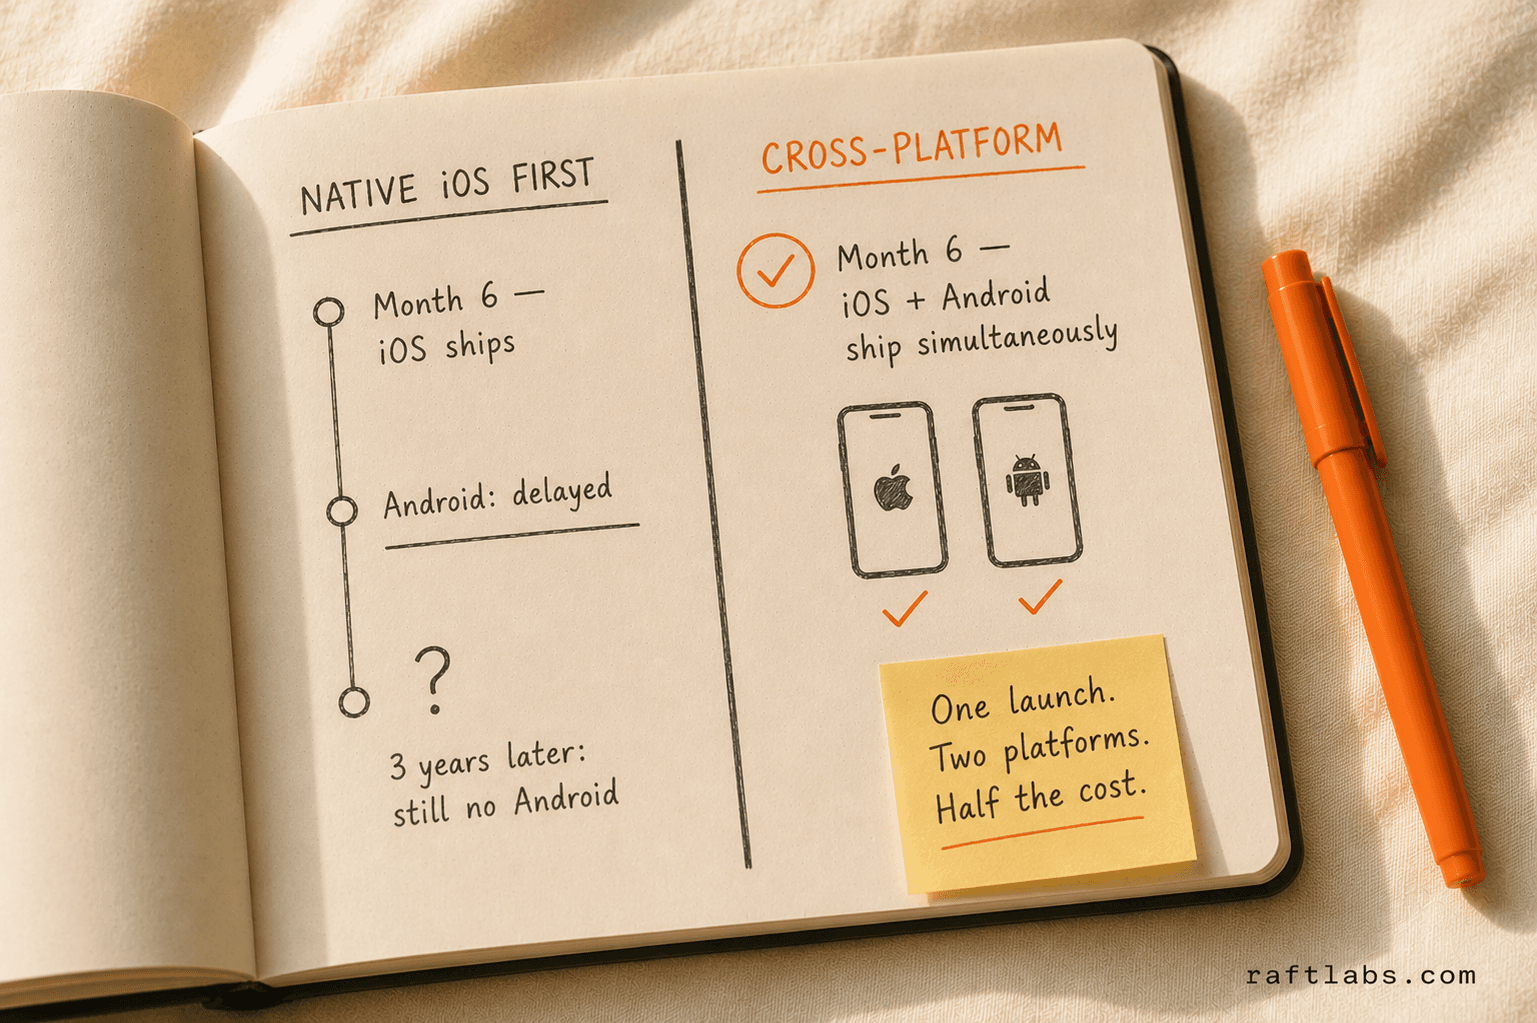 NATIVE iOS FIRST
Month 6 —
iOS ships
Android: delayed
?
3 years later:
still no Android
CROSS-PLATFORM
Month 6 —
iOS + Android
ship simultaneously
One launch.
Two platforms.
Half the cost.
raftlabs.com